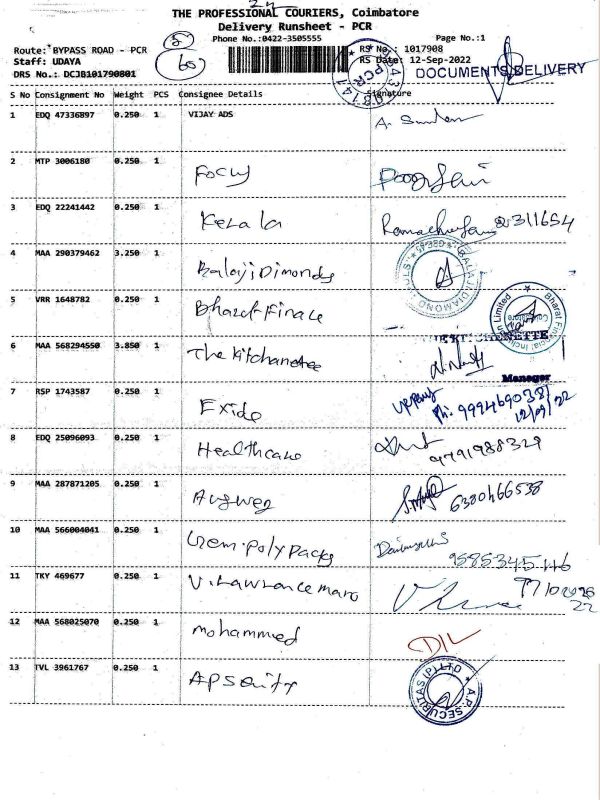 THE PROFESSIONAL COURIERS, Coimbatore
Delivery Runsheet - PCR
Phone No.:0422-3505555
Page No.:1
Route: BYPASS ROAD - PCR
RS No.: 1017908
Staff: UDAYA
RS Date: 12-Sep-2022
DRS No.: DCJB101790801
DOCUMENTS DELIVERY
S No Consignment No Weight PCS Consignee Details Signature
1 EDQ 47336897 0.250 1 VIJAY ADS
2 MTP 3006180 0.250 1 Focus
3 EDQ 22241442 0.250 1 Kerala 311654
4 MAA 290379462 3.250 1 Balaji Dimonds
5 VRR 1648782 0.250 1 Bharat Finace
6 MAA 568294550 3.850 1 The Kitchanettee
Manager
7 RSP 1743587 0.250 1 Exide
12/09/22
8 EDQ 25096093 0.250 1 Healthcare 9791988329
9 MAA 287871205 0.250 1 6380466538
10 MAA 566004041 0.250 1 Gem.poly packs
11 TKY 469677 0.250 1 V. Lawrance maro
12 MAA 568025070 0.250 1 mohammed DIL
13 TVL 3961767 0.250 1
A.P. SECURITAS (P) LTD